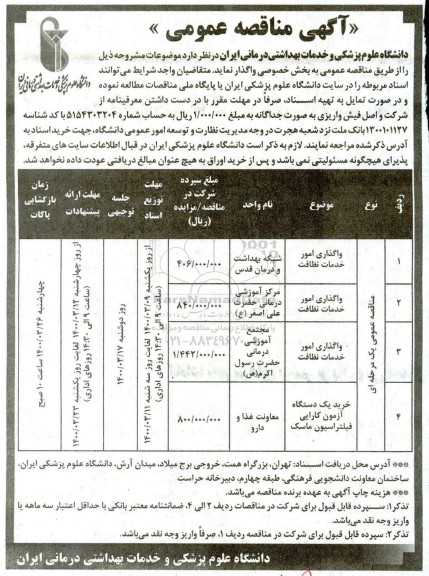 « آگهی مناقصه عمومی »
دانشگاه علوم پزشکی و خدمات بهداشتی درمانی ایران
دانشگاه علوم پزشکی و خدمات بهداشتی درمانی ایران در نظر دارد موضوعات مشروحه ذیل
را از طریق مناقصه عمومی به بخش خصوصی واگذار نماید. متقاضیان واجد شرایط می‌توانند
اسناد مربوطه را در سایت دانشگاه علوم پزشکی ایران یا پایگاه ملی مناقصات مطالعه نموده
و در صورت تمایل به تهیه اسناد، صرفاً در مهلت مقرر با در دست داشتن معرفینامه از
شرکت و اصل فیش واریزی به صورت جداگانه به مبلغ ۱/۰۰۰/۰۰۰ ریال به حساب شماره ۵۱۵۴۳۰۳۲۰۴ با کد شناسه
۱۳۰۰۱۰۱۱۲۷ بانک ملت نزد شعبه هجرت در وجه مدیریت نظارت و توسعه امور عمومی دانشگاه، جهت خرید اسناد به
آدرس ذکر شده مراجعه نمایند. لازم به ذکر است دانشگاه علوم پزشکی ایران در قبال اطلاعات سایت های متفرقه،
پذیرای هیچگونه مسئولیتی نمی باشد و پس از خرید اوراق به هیچ عنوان مبالغ دریافتی عودت داده نخواهد شد.
ردیف نوع موضوع نام واحد مبلغ سپرده شرکت در مناقصه/مزایده (ریال) مهلت توزیع اسناد جلسه توجیهی مهلت ارائه پیشنهادات زمان بازگشایی پاکات
مناقصه عمومی یک مرحله ای
۱ واگذاری امور خدمات نظافت شبکه بهداشت و درمان قدس ۴۰۶/۰۰۰/۰۰۰
۲ واگذاری امور خدمات نظافت مرکز آموزشی درمانی حضرت علی اصغر (ع) ۸۴۰/۰۰۰/۰۰۰
۳ واگذاری امور خدمات نظافت مجتمع آموزشی درمانی حضرت رسول اکرم(ص) ۱/۴۴۲/۰۰۰/۰۰۰
۴ خرید یک دستگاه آزمون کارایی فیلتراسیون ماسک معاونت غذا و دارو ۸۰۰/۰۰۰/۰۰۰
از روز یکشنبه ۱۴۰۰/۰۳/۰۹ لغایت روز سه شنبه ۱۴۰۰/۰۳/۱۱
(ساعت ۹ الی ۱۴:۳۰ روزهای اداری)
روز دوشنبه ۱۴۰۰/۰۳/۱۷
از روز چهارشنبه ۱۴۰۰/۰۳/۱۲ لغایت روز یکشنبه ۱۴۰۰/۰۳/۲۳
(ساعت ۹ الی ۱۴:۳۰ روزهای اداری)
چهارشنبه ۱۴۰۰/۰۳/۲۶ ساعت ۱۰ صبح
*** آدرس محل دریافت اسناد: تهران، بزرگراه همت، خروجی برج میلاد، میدان آرش، دانشگاه علوم پزشکی ایران،
ساختمان معاونت دانشجویی فرهنگی، طبقه چهارم، دبیرخانه حراست
*** هزینه چاپ آگهی به عهده برنده مناقصه می‌باشد.
تذکر۱: سپرده قابل قبول برای شرکت در مناقصات ردیف ۲ الی ۴، ضمانتنامه معتبر بانکی با حداقل اعتبار سه ماهه یا
واریز وجه نقد می‌باشد.
تذکر۲: سپرده قابل قبول برای شرکت در مناقصه ردیف ۱، صرفاً واریز وجه نقد می‌باشد.
دانشگاه علوم پزشکی و خدمات بهداشتی درمانی ایران